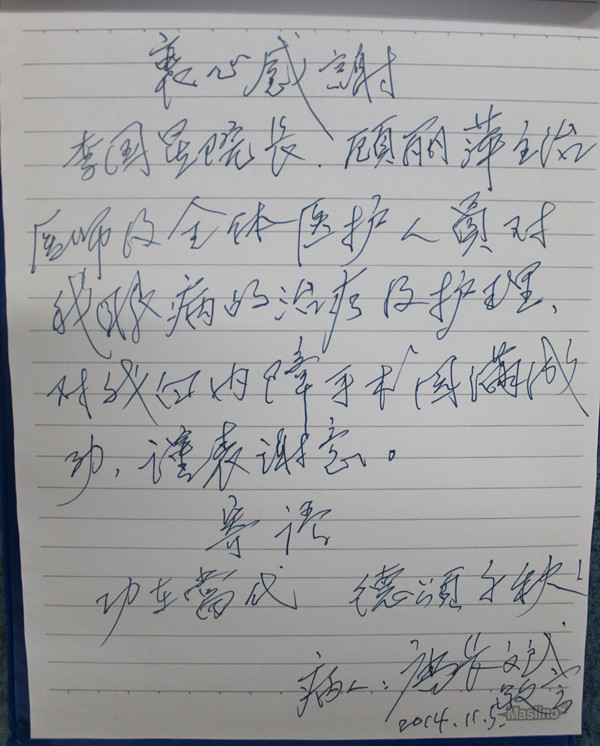 衷心感謝
李国昱院长、顾丽萍主治
医师及全体医护人員对
我眼病的治疗及护理、
对我白内障手术圆满成
功，谨表谢意。
寄语
功在當代 德頌千秋！
病人：
敬言
2014.11.5.
Maslino